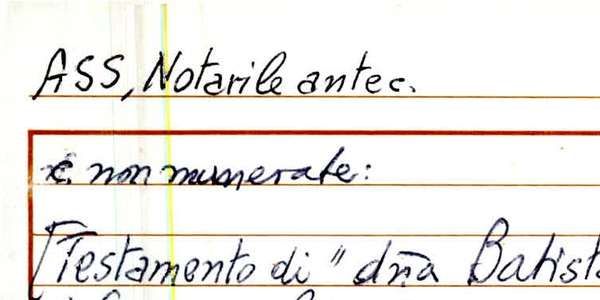 ASS, Notarile antec.
c. non numerate:
[Testamento di " dña Batist